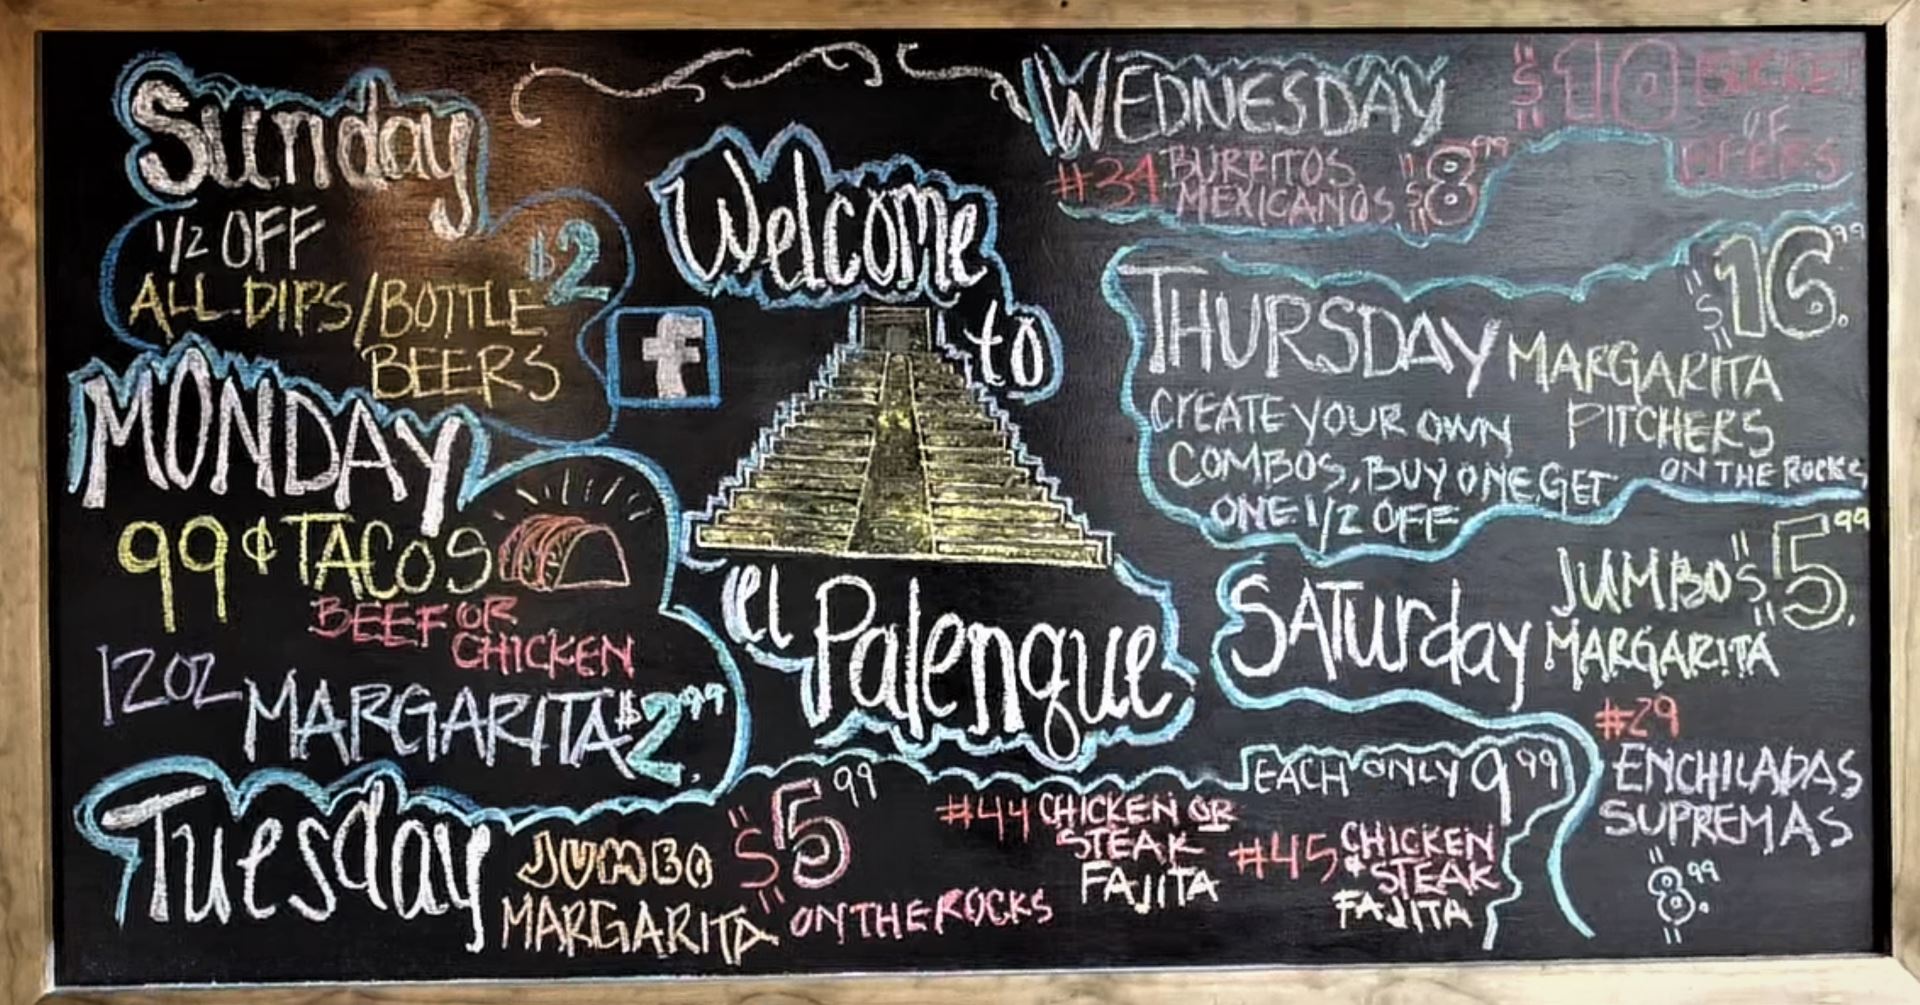 Sunday
1/2 OFF
ALL DIPS/BOTTLE
BEERS
$2
MONDAY
99¢ TACOS
BEEF OR
CHICKEN
12OZ MARGARITA $2.99
Tuesday
JUMBO
MARGARITA
$5.99
ON THE ROCKS
#44 CHICKEN OR
STEAK
FAJITA
#45 CHICKEN
& STEAK
FAJITA
EACH ONLY 9.99
f
Welcome
to
el
Palenque
WEDNESDAY
#34 BURRITOS
MEXICANOS $8.99
$10 BUCKET
OF
BEERS
THURSDAY
CREATE YOUR OWN
COMBOS, BUY ONE, GET
ONE 1/2 OFF
$16.99
MARGARITA
PITCHERS
ON THE ROCKS
SATurday
JUMBO $5.99
MARGARITA
#29
ENCHILADAS
SUPREMAS
"8.99"